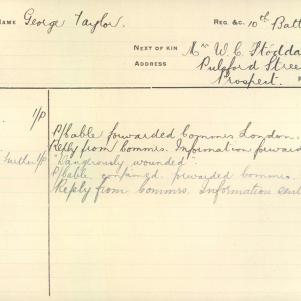 NAME George Taylor. REG. &C. 10th Batt
NEXT OF KIN Mrs W. C. Stodda
ADDRESS Pulsford Stree
Prospect.
I/P P/Cable forwarded Commrs London.
Reply from Commrs. Information forward
Further I/P "Dangerously wounded".
P/Cable contained forwarded Commrs.
Reply from Commrs. Information sent